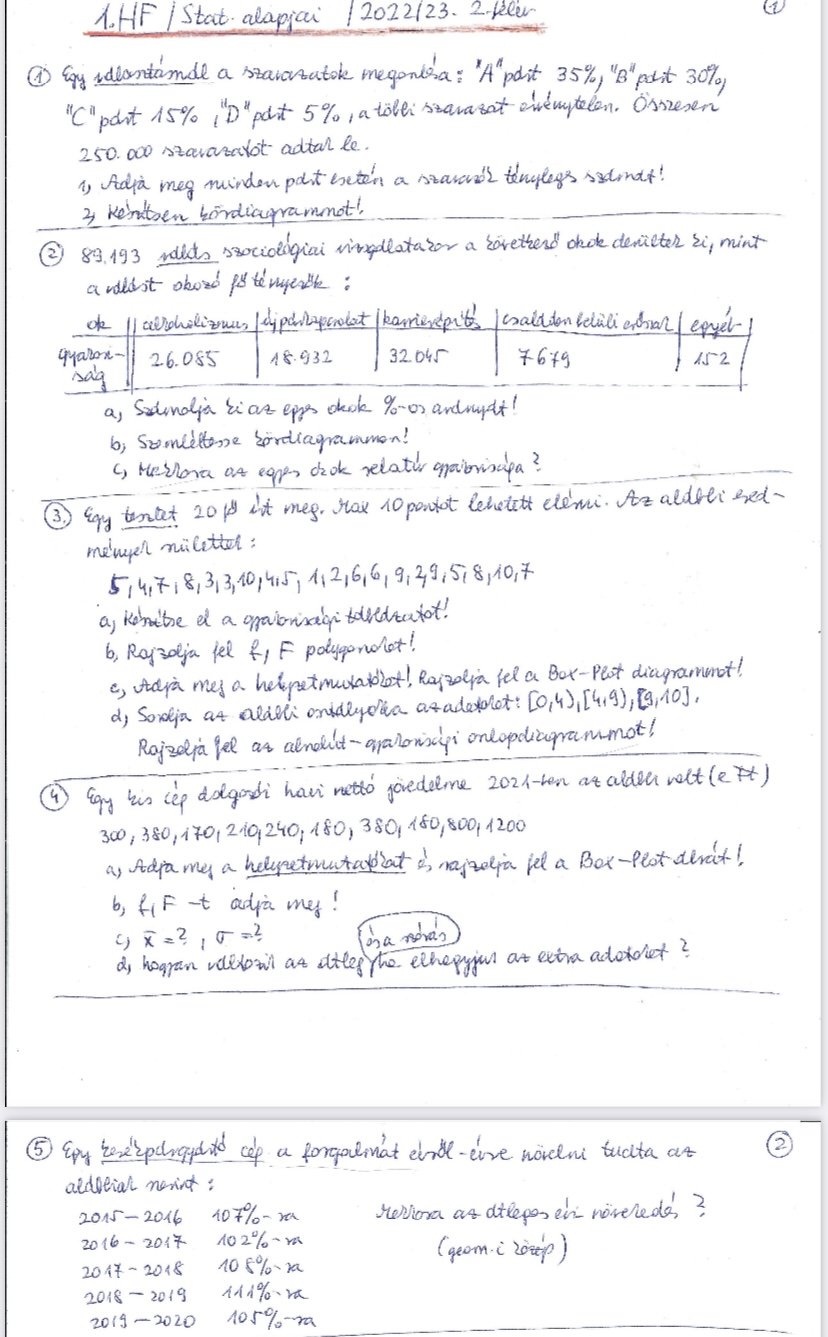 1. HF / Stat. alapjai / 2022/23. 2. félév
①
① Egy választásnál a szavazatok megoszlása: "A" párt 35%, "B" párt 30%,
"C" párt 15%, "D" párt 5%, a többi szavazat érvénytelen. Összesen
250.000 szavazatót adtak le.
1, Adja meg minden párt esetén a szavazók tényleges számát!
2, Készítsen kördiagrammot!
② 89.193 válás szociológiai vizsgálatakor a következő okok derültek ki, mint
a válást okozó fő tényezők :
ok alkoholizmus új párkapcsolat karrierépítés családon belüli erőszak egyéb
gyakori-
ság 26.085 18.932 32.045 7679 152
a, Számolja ki az egyes okok %-os arányát!
b, Szemléltesse kördiagrammon!
c, Mekkora az egyes okok relatív gyakorisága?
③. Egy tesztet 20 fő írt meg. Max 10 pontot lehetett elérni. Az alábbi ered-
mények születtek :
5, 4, 7, 8, 3, 3, 10, 4, 5, 1, 2, 6, 6, 9, 2, 9, 5, 8, 10, 7
a, Készítse el a gyakorisági táblázatot!
b, Rajzolja fel f, F polygonokat!
c, Adja meg a helyzetmutatókat! Rajzolja fel a Box-Plot diagrammot!
d, Sorolja az alábbi osztályokba az adatokat: [0,4), [4,9), [9,10].
Rajzolja fel az abszolút-gyakorisági oszlopdiagrammot!
④ Egy kis cég dolgozói havi nettó jövedelme 2021-ben az alábbi volt (e Ft)
300, 380, 170, 210, 240, 180, 380, 180, 800, 1200
a, Adja meg a helyzetmutatókat és rajzolja fel a Box-Plot ábrát!
b, f, F -t adja meg!
c, x̄ = ? , σ = ?
d, hogyan változik az átlag és a szórás ha elhagyjuk az extra adatokat ?
②
⑤ Egy kerékpárgyártó cég a forgalmát évről-évre növelni tudta az
alábbiak szerint :
2015 – 2016 107%-ra Mekkora az átlagos évi növekedés ?
2016 – 2017 102%-ra (geom.-i közép)
2017 – 2018 108%-ra
2018 – 2019 111%-ra
2019 – 2020 105%-ra